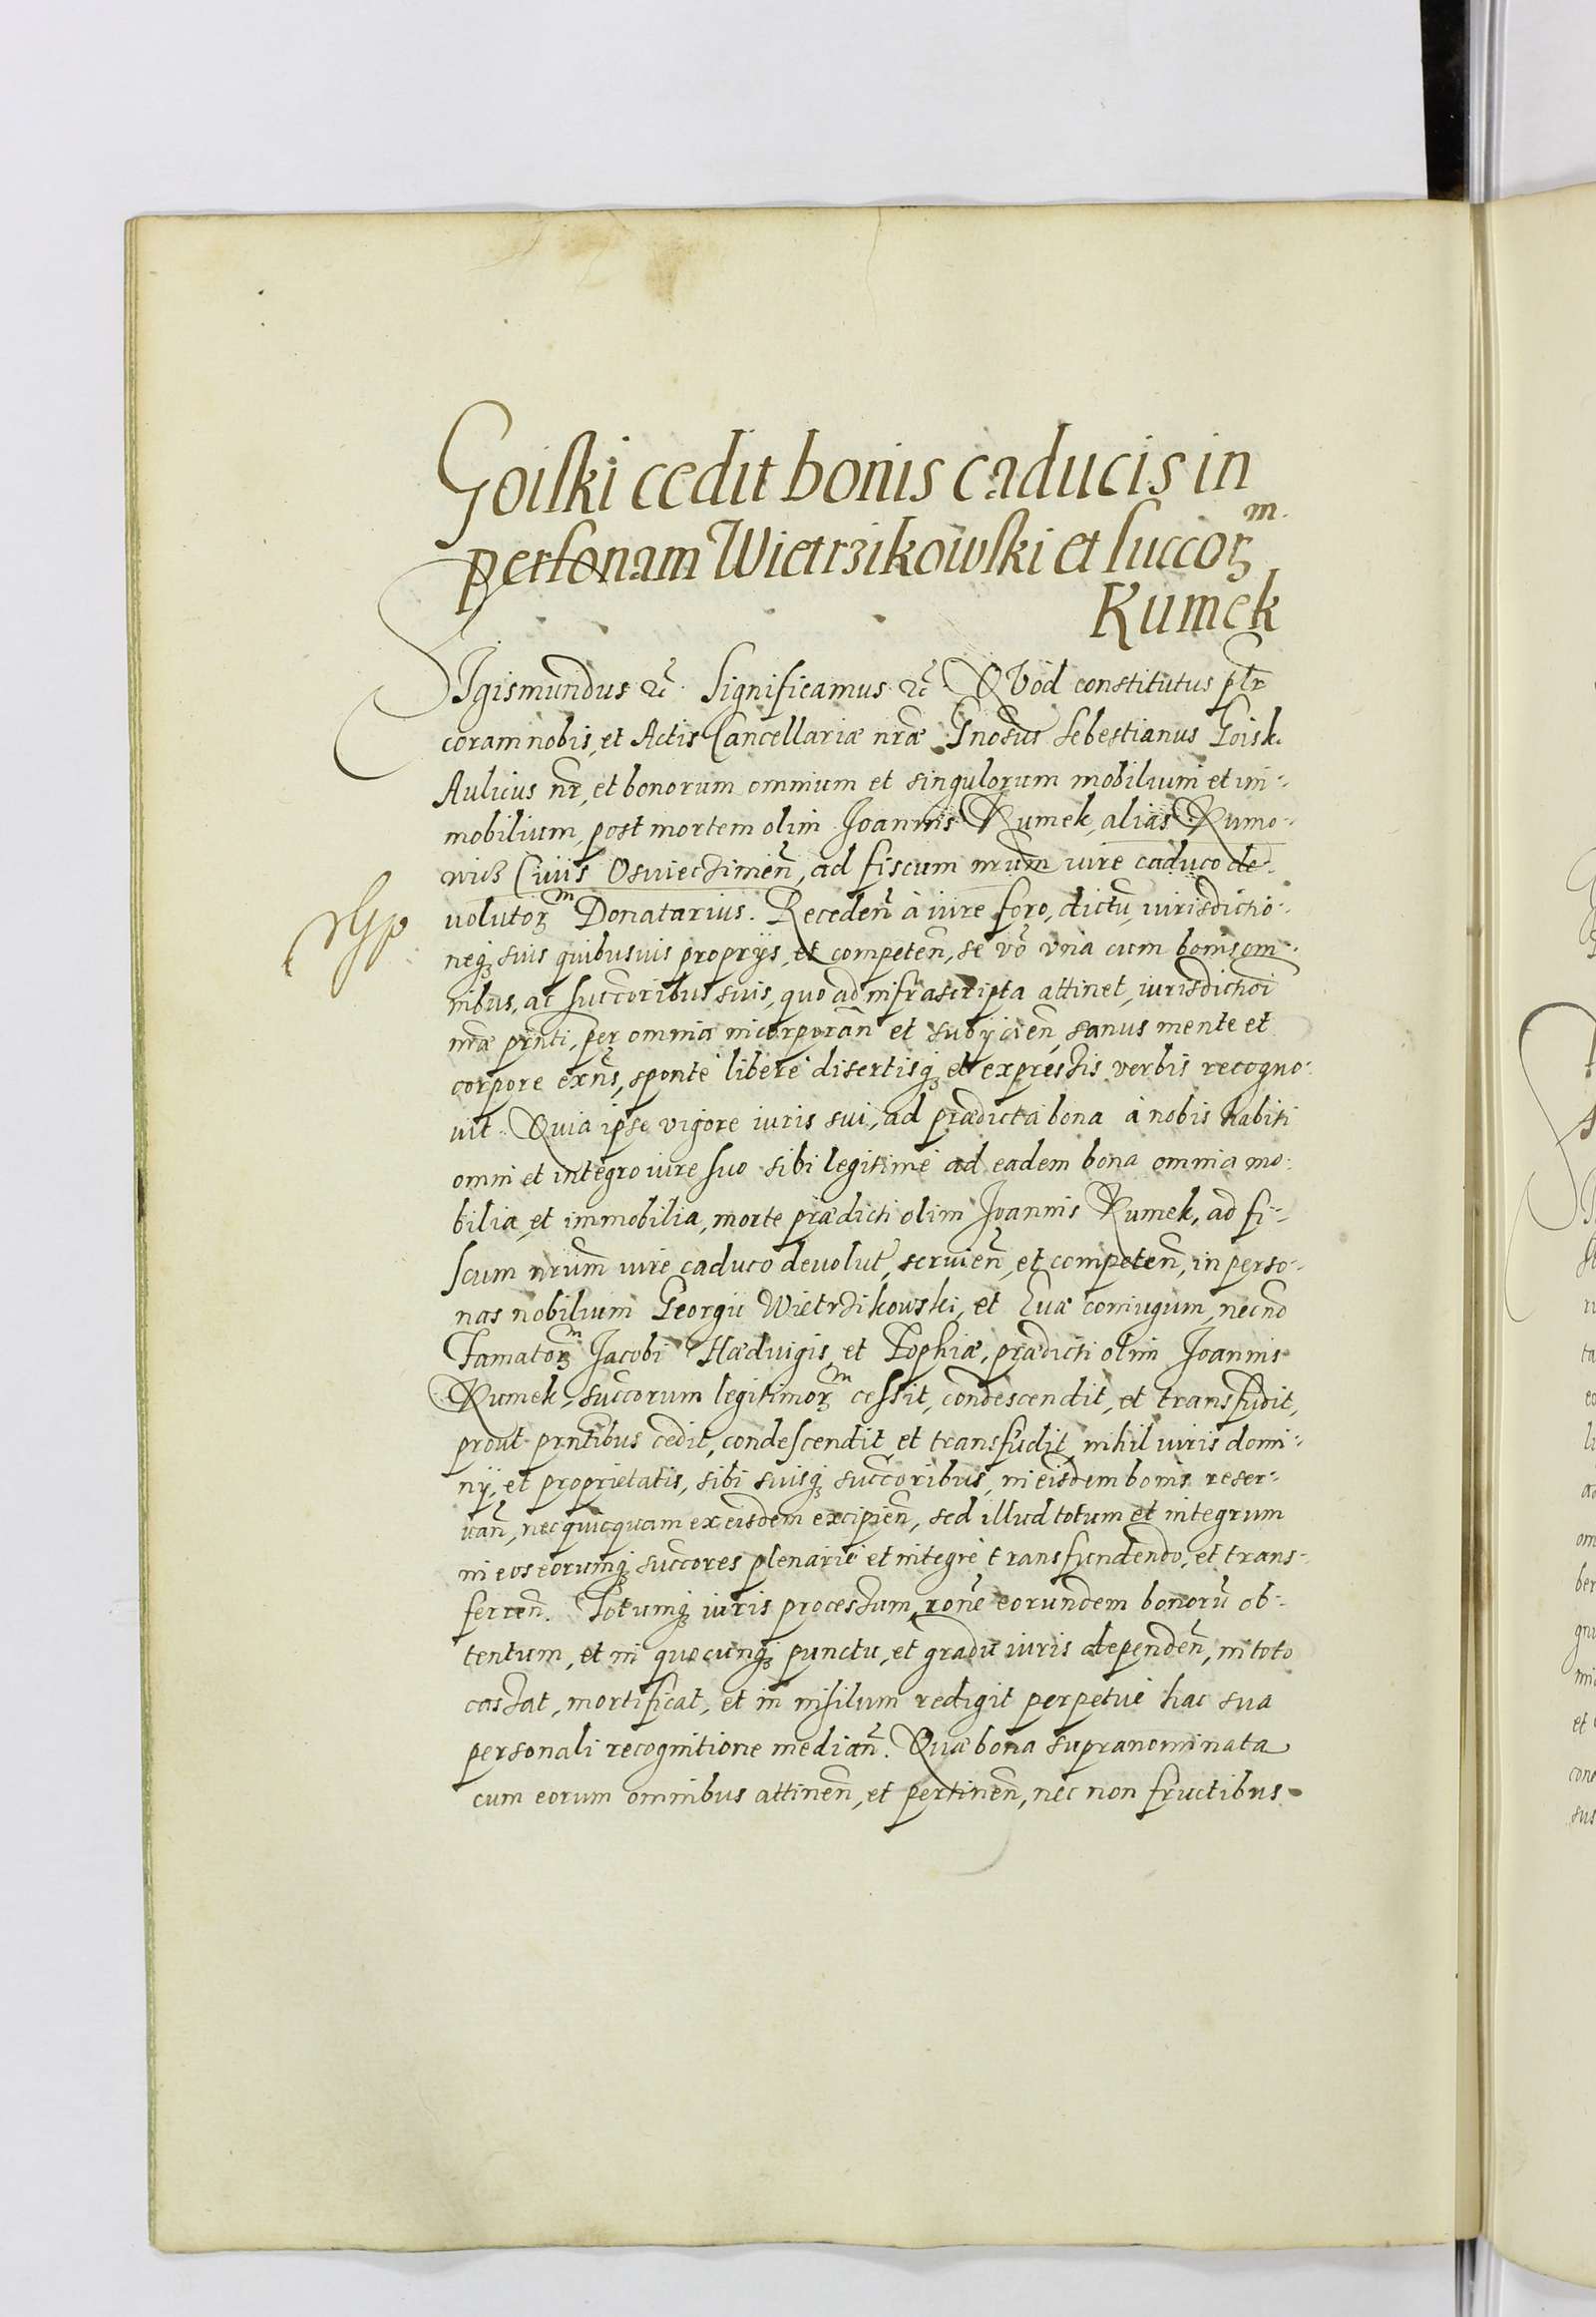 Goiski cedit bonis caducis in
personam Wietrzikowski et succorꝫ m.
Kumek
SIgismundus ꝛc̄. Significamus ꝛc̄. QVod constitutus pꝉr
coram nobis, et Actis Cancellariæ nr̄æ Gnōsus Sebestianus Goisk.
Aulicus nr̄, et bonorum omnium et singulorum mobilium et im-
mobilium, post mortem olim Joannis Kumek, alias Kumo-
wicz Civis Osviecimen̄, ad fiscum nrūm iure caduco de-
volutorꝫ m Donatarius. Receden̄ à iure foro, dictū, iurisdictio-
neqꝫ suis quibusvis proprijs, et competen̄, se vō vna cum bonis om-
nibus, ac succoribus suis, quo ad infrascripta attinet, iurisdictioi
nr̄æ prn̄ti, per omnia incorporan̄ et subijcien̄, sanus mente et
corpore exn̄s, sponte libere disertisqꝫ et expressis verbis recogno-
vit. Quia ipse vigore iuris sui, ad prædicta bona à nobis habiti
omni et integro iure suo sibi legitime ad eadem bona omnia mo-
bilia, et immobilia, morte prædicti olim Joannis Kumek, ad fi-
scum nrūm iure caduco devolut, servien̄, et competen̄, in perso-
nas nobilium Georgii Wietrzikowski, et Evæ coniugum, necno
Famatorꝫ m Jacobi Hædvigis, et Zophiæ, prædicti olim Joannis
Kumek, succorum legitimorꝫ m cessit, condescendit, et transfudit,
prout prn̄tibus cedit, condescendit, et transfudit, nihil iuris domi-
nij, et proprietatis, sibi suisqꝫ succoribus, in eisdem bonis reser-
van̄, nec quicquam ex eisdem excipien̄, sed illud totum et integrum
in eos eorumqꝫ succores plenarie et integre transfundendo, et trans-
ferren̄. Totumqꝫ iuris processum, ron̄e eorundem bonorū ob-
tentum, et in quocunqꝫ punctu, et gradu iuris dependen̄, in toto
cassat, mortificat, et in nihilum redigit perpetue hac sua
personali recognitione median̄. Quæ bona supranominata
cum eorum omnibus attinen̄, et pertinen̄, nec non fructibus